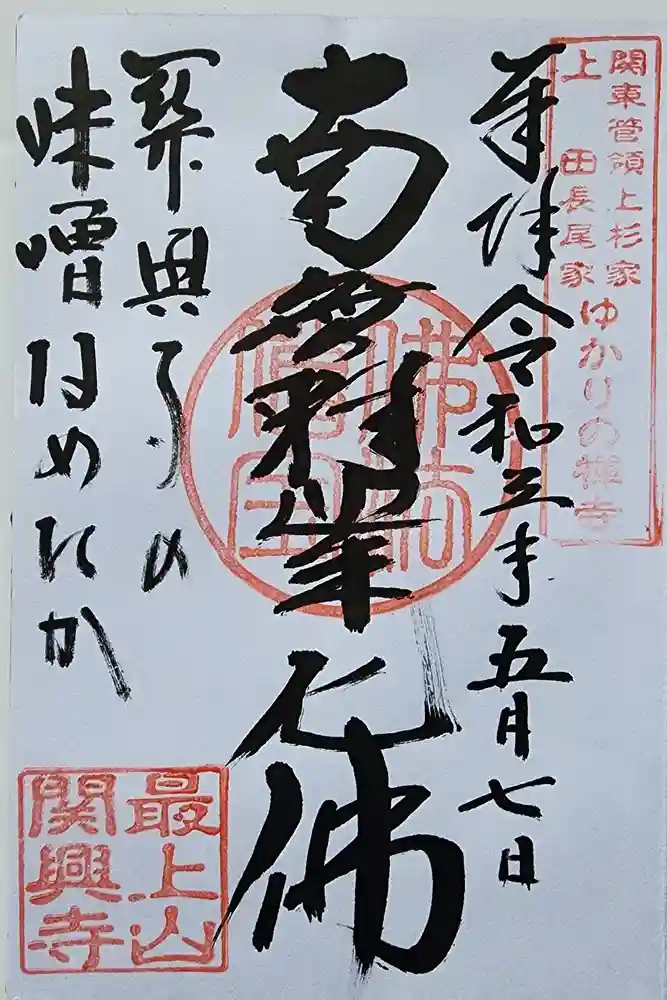 関東管領上杉家
上田長尾家ゆかりの禅寺
奉拝 令和三年五月七日
南無釈迦牟尼佛
佛法僧宝
関興寺の
味噌なめたか
最上山
関興寺